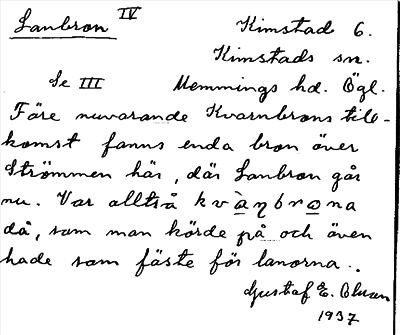 Lanbron IV Kimstad 6.
Kimstads sn.
Se III Memmings hd. Ögl.
Före nuvarande Kvarnbrons till-
komst fanns enda bron över
Strömmen här, där Lanbron går
nu. Var alltså kvàŋbrona
då, som man körde på och även
hade som fäste för lanorna..
Gustaf E. Olsson
1937